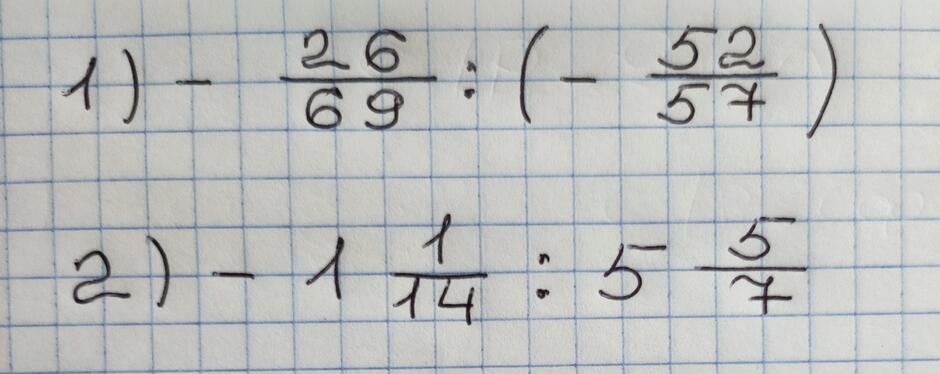 1) - 26/69 : (- 52/57)
2) - 1 1/14 : 5 5/7